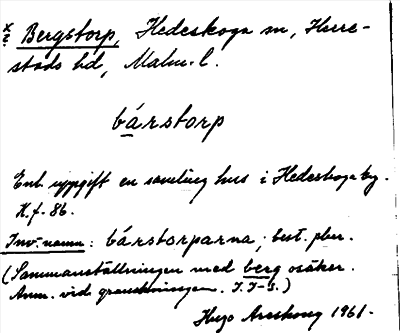 Bergstorp, Hedeskoga sn, Herre-
stads hd, Malm. l.
bárstorp
Enl. uppgift en samling hus i Hedeskoga by.
K. f. 86.
Inv. namn: bárstorparna; best. plur.
(Sammanställningen med berg osäker.
Anm. vid granskningen. I. I-g.)
Hugo Areskoug 1961.